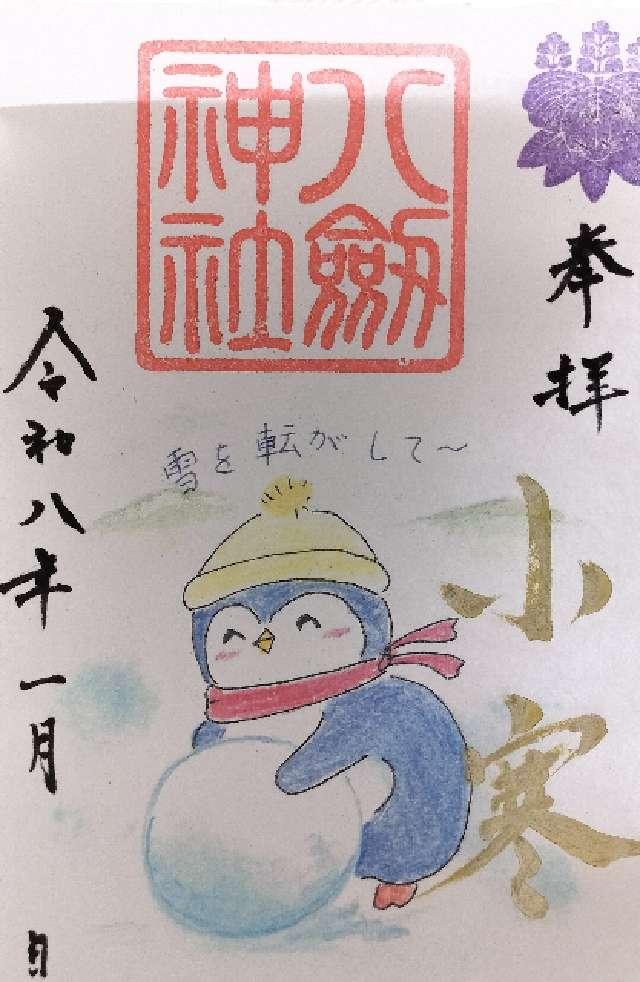 奉拝
八劔
神社
雪を転がして～
小寒
令和八年一月 日